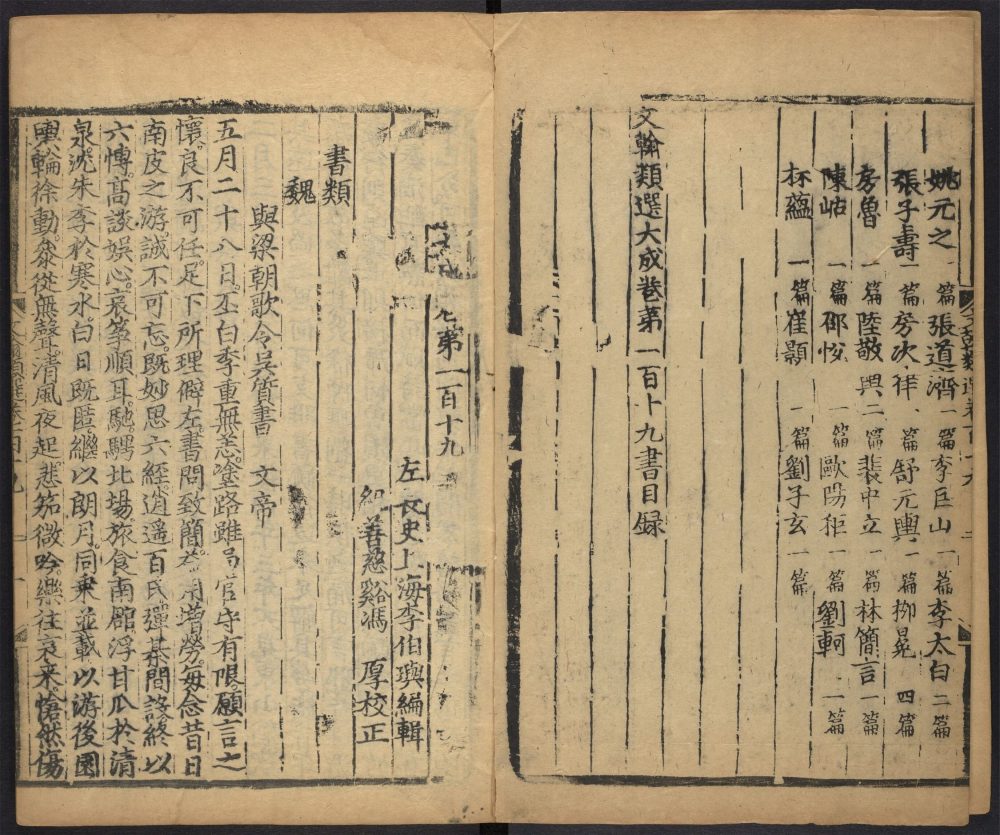 姚元之 一篇 張道濟 一篇 李巨山 一篇 李太白 二篇
張子壽 一篇 房次律 一篇 舒元輿 一篇 柳冕 四篇
房魯 一篇 陸敬輿 二篇 裴中立 一篇 林簡言 一篇
陳岵 一篇 邵悛 一篇 歐陽秬 一篇 劉軻 一篇
林蘊 一篇 崔顥 一篇 劉子玄 一篇
文翰類選大成卷第一百十九書目録
卷第一百十九
左長史上海李伯璵編輯
紀善慈谿馮 厚校正
書類
魏
與梁朝歌令吳質書 文帝
五月二十八日丕白季重無恙塗路雖局官守有限願言之
懷良不可任足下所理僻左書問致簡益用增勞毎念昔日
南皮之游誠不可忘既妙思六經逍遥百氏彈棊間設終以
六愽髙談娛心哀筝順耳馳騁北場旅食南館浮甘瓜於清
泉沈朱李於寒水白日既匿繼以朗月同乗並載以游後園
輿輪徐動參從無聲清風夜起悲笳微吟樂往哀来愴然傷